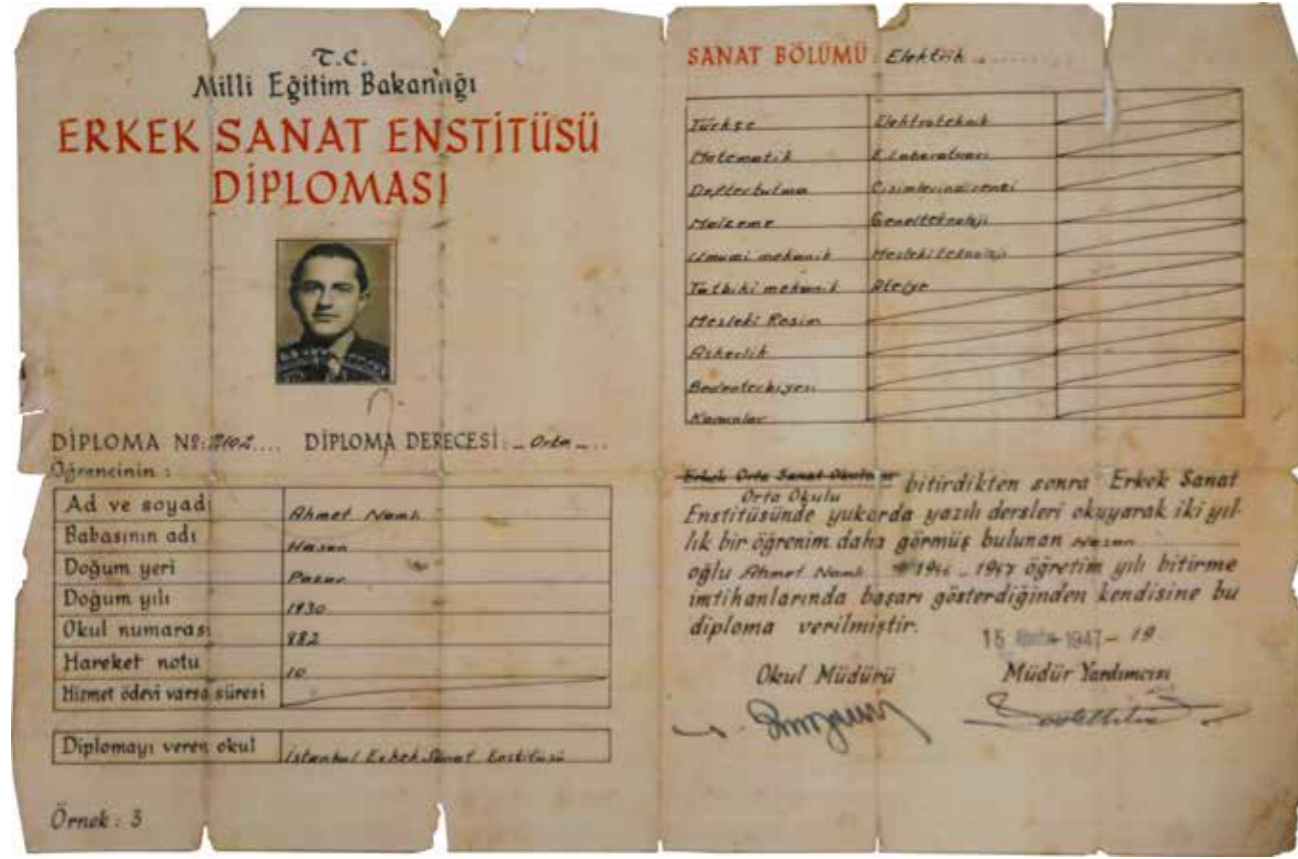 T.C.
Milli Eğitim Bakanlığı
ERKEK SANAT ENSTİTÜSÜ
DİPLOMASI
DİPLOMA Nº: DİPLOMA DERECESİ: Orta
Öğrencinin :
Ad ve soyadı Ahmet Namlı
Babasının adı Hasan
Doğum yeri Pazar
Doğum yılı 1930
Okul numarası 882
Hareket notu 10
Hizmet ödevi varsa süresi
Diplomayı veren okul İstanbul Erkek Sanat Enstitüsü
Örnek : 3
SANAT BÖLÜMÜ: Elektrik
Türkçe Elektroteknik
Matematik E. Laboratuarı
Deftertutma Cisimlerindirenci
Malzeme Genelteknoloji
Umumi mekanik Meslekiteknoloji
Tatbiki mekanik Atelye
Mesleki Resim
Askerlik
Bedenterbiyesi
Kanunlar
Erkek Orta Sanat Okulu
Orta Okulu
bitirdikten sonra Erkek Sanat
Enstitüsünde yukarda yazılı dersleri okuyarak iki yıl-
lık bir öğrenim daha görmüş bulunan Hasan
oğlu Ahmet Namlı 1946 - 1947 öğretim yılı bitirme
imtihanlarında başarı gösterdiğinden kendisine bu
diploma verilmiştir.
15 1947 - 19
Okul Müdürü Müdür Yardımcısı